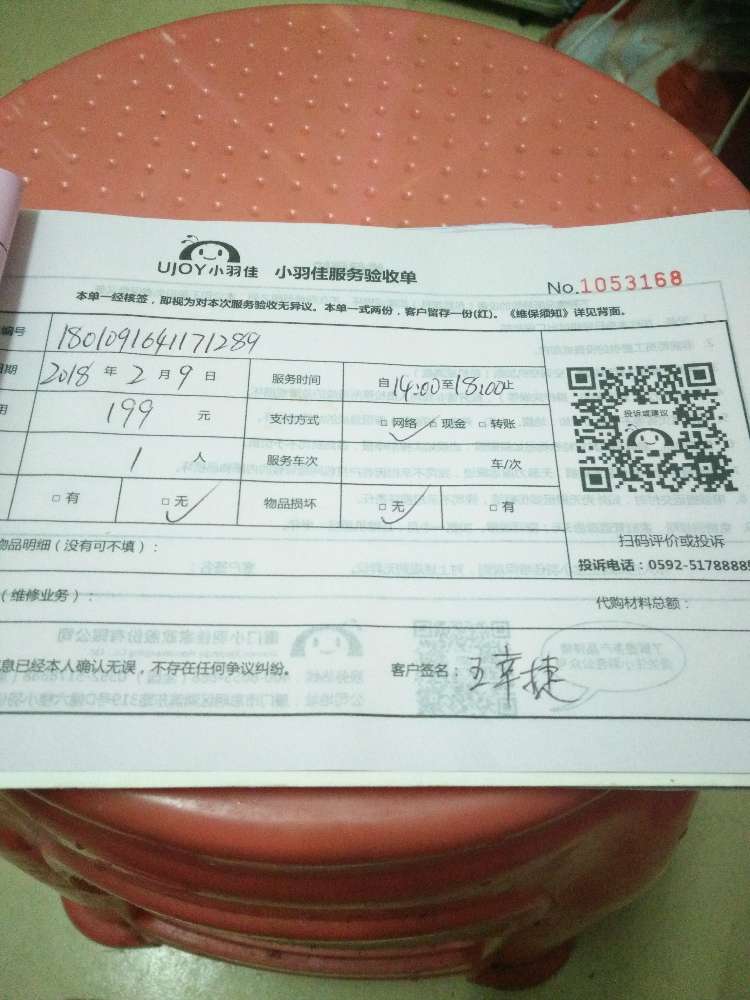 UJOY小羽佳 小羽佳服务验收单
No.1053168
本单一经核签，即视为对本次服务验收无异议。本单一式两份，客户留存一份(红)。《维保须知》详见背面。
编号 1801091641171289
日期 2018 年 2 月 9 日 服务时间 自 14:00 至 18:00 止
用 199 元 支付方式 □ 网络 ✓ □ 现金 □ 转账
投诉或建议
1 人 服务车次 车/次
□ 有 □ 无 ✓ 物品损坏 □ 无 ✓ □ 有
物品明细（没有可不填）：
扫码评价或投诉
投诉电话：0592-5178888
（维修业务）： 代购材料总额：
息已经本人确认无误，不存在任何争议纠纷。 客户签名：王幸捷